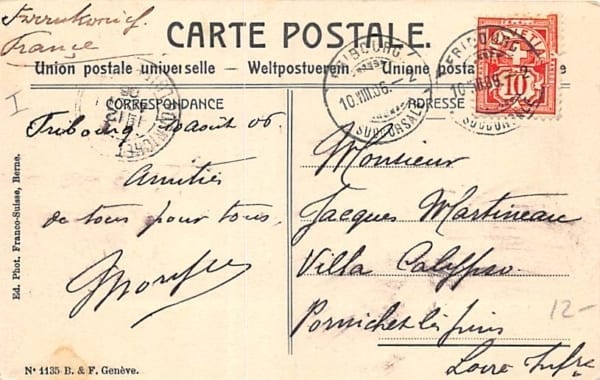 France
CARTE POSTALE.
Union postale universelle – Weltpostverein – Unione postale
CORRESPONDANCE
ADRESSE
FRIBOURG
10.VIII.06.
SUCCURSALE
HELVETIA
10
Fribourg 10 août 06.
Amitiés
de tous pour tous.
Monsieur
Jacques Martineau
Villa Calypso.
Pornichet les pins
Loire Infre
12-
Ed. Phot. Franco-Suisse, Berne.
N° 1135 B. & F. Genève.